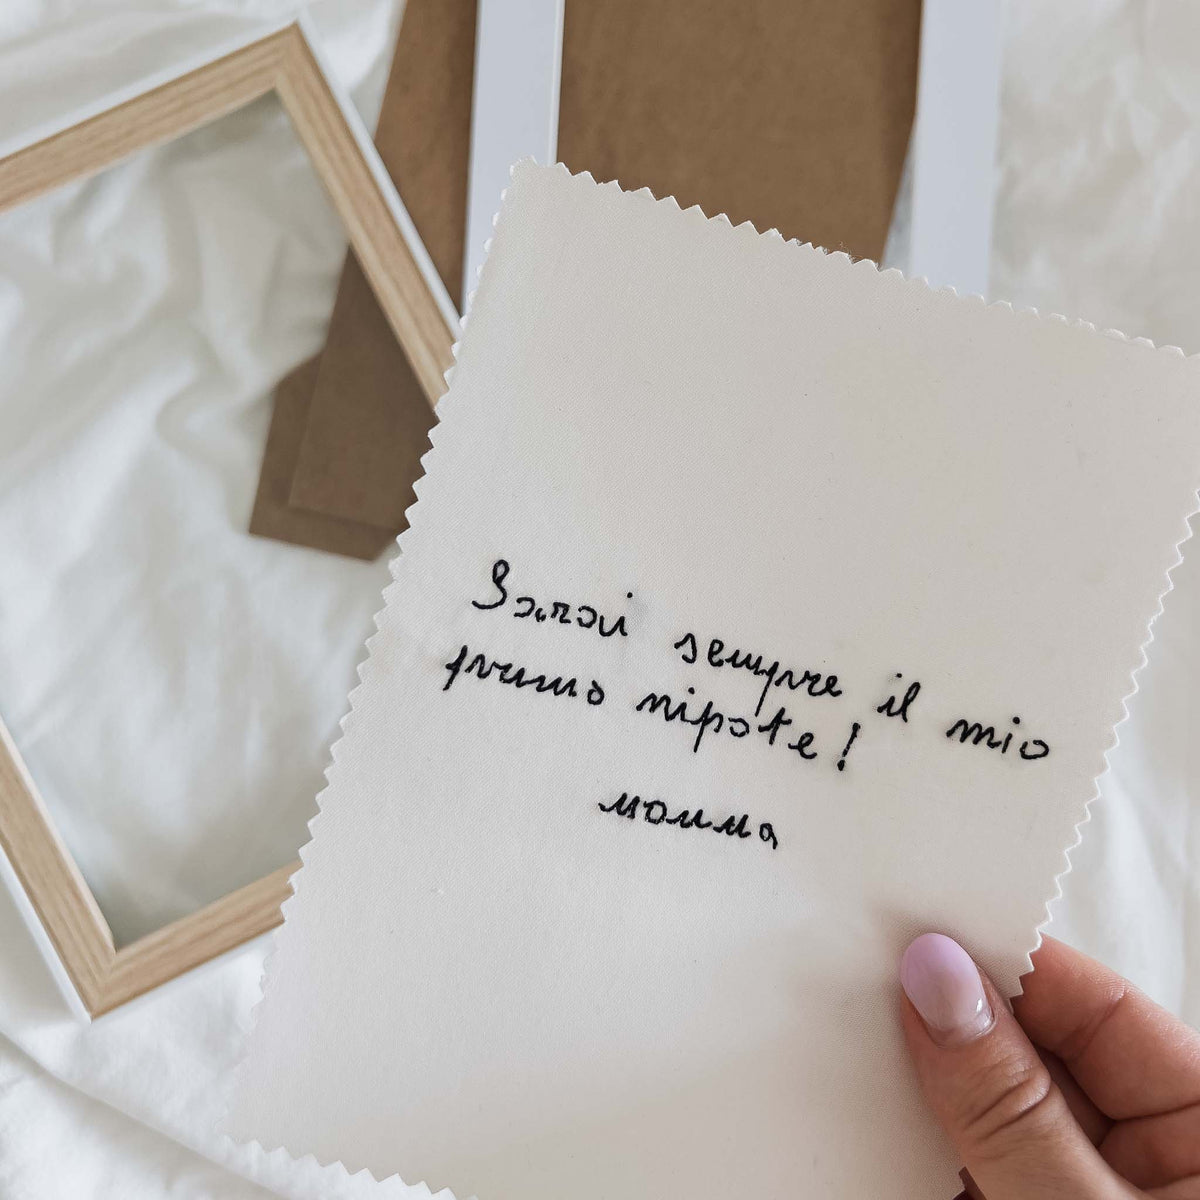 Sarai sempre il mio
primo nipote!
nonna